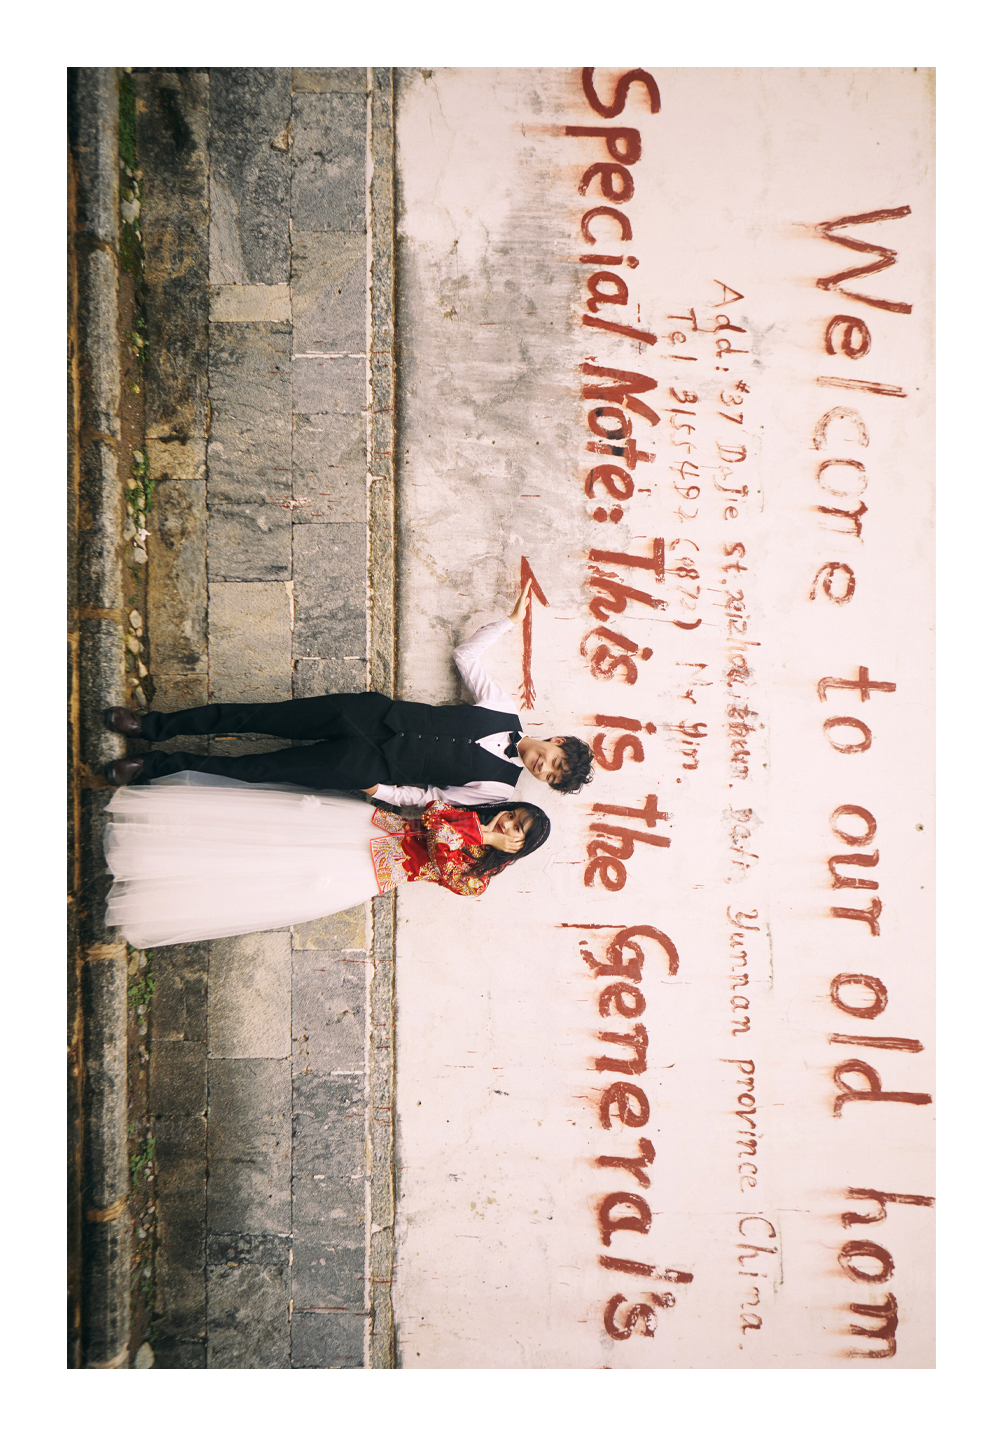 Welcome to our old hom
Add: #37 DaJie st. xizhou town. Dali Yunnan province China.
Tel 3155492 (Mr Yin.
Special Note: This is the General's